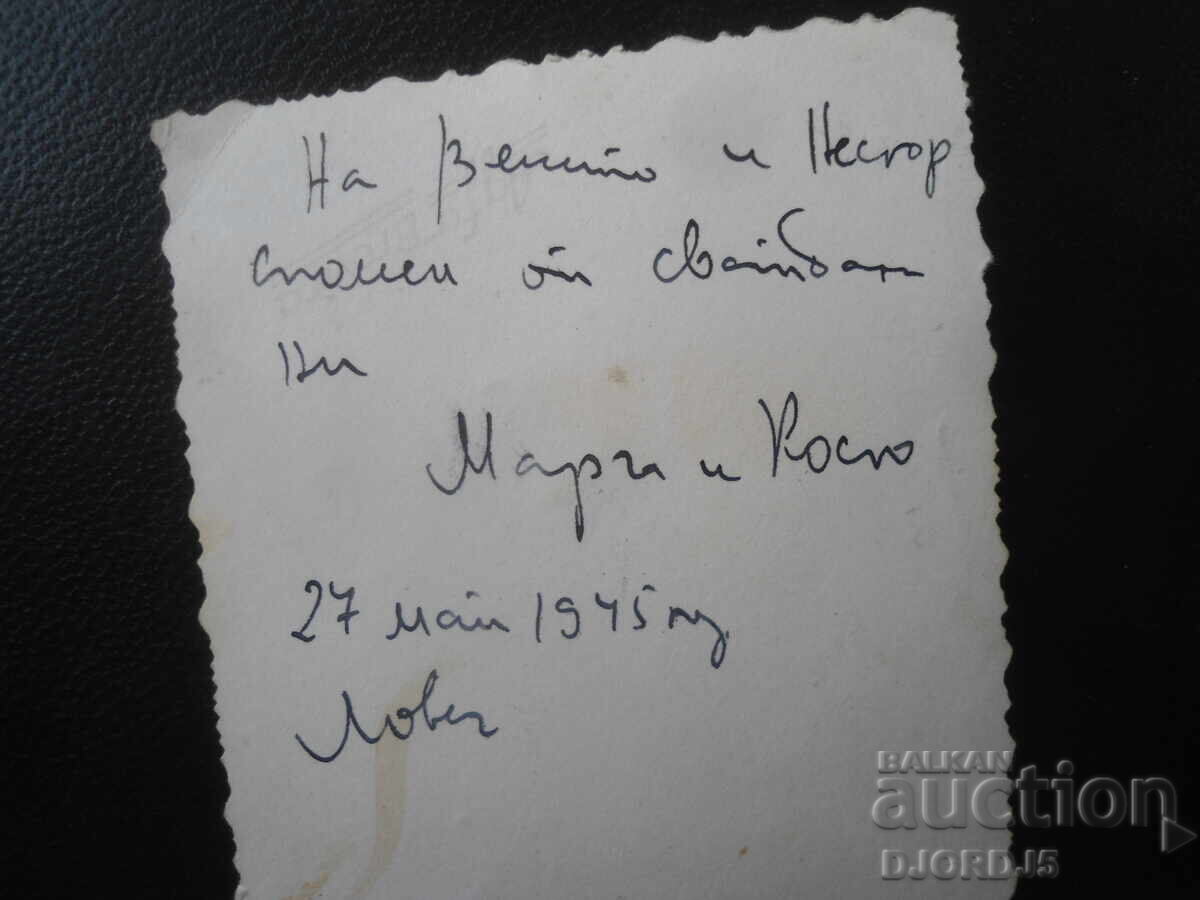 На Венито и Нестор
спомен от сватбата
ни
Марга и Косю
27 май 1945 г.
Ловеч
BALKAN
auction
DJORDJ5